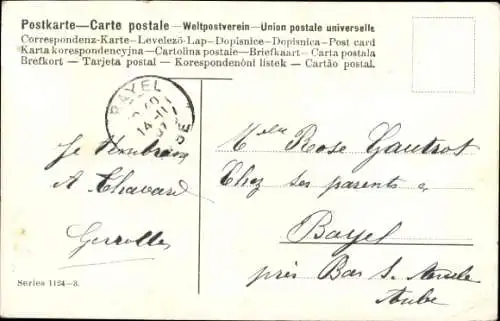 Postkarte—Carte postale—Weltpostverein—Union postale universelle
Correspondenz-Karte—Levelezö-Lap—Dopisnice—Dopisnica—Post card
Karta korespondencyjna—Cartolina postale—Briefkaart—Carta postala
Brefkort — Tarjeta postal — Korespondenční listek — Cartão postal.
BAYEL
14-11
07
Je
A Chavard
Mlle Rose Gautrot
Chez ses parents a
Bayel
près Bar s. Aube
Aube
Series 1124—3.